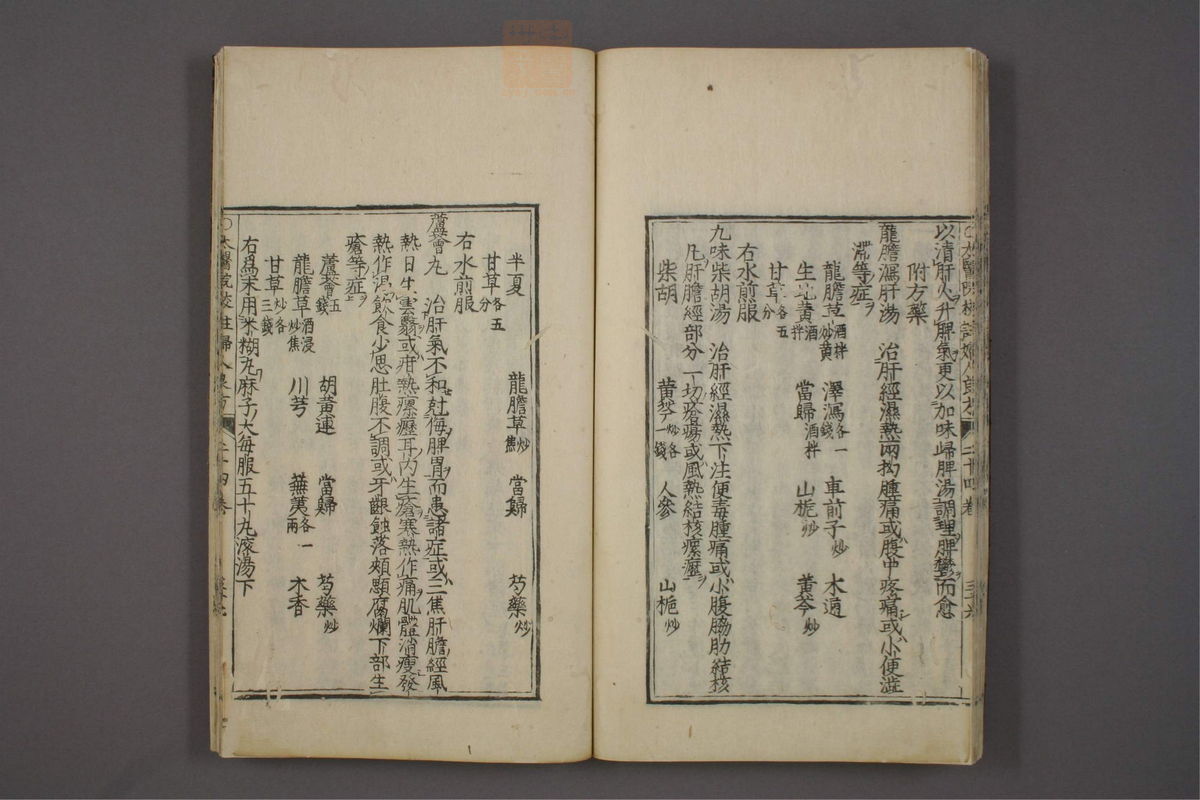 以清肝火升脾氣更以加味歸脾湯調理脾鬱而愈
附方藥
龍膽瀉肝湯　治肝經濕熱兩拗腫痛或腹中疼痛或小便澁
滯等症
龍膽草酒拌炒黄　澤瀉各一錢　車前子炒　木通
生地黄酒拌　當歸酒拌　山梔炒　黄芩炒
甘草各五分
右水煎服
九味柴胡湯　治肝經濕熱下注便毒腫痛或小腹脇肋結核
凡肝膽經部分一切瘡瘍或風熱結核瘰癧
柴胡　黄芩炒各一錢　人參　山梔炒
半夏　龍膽草炒焦　當歸　芍藥炒
甘草各五分
右水煎服
蘆薈丸　治肝氣不和尅侮脾胃而患諸症或三焦肝膽經風
熱目生雲翳或疳熱瘰癧耳內生瘡寒熱作痛肌體消瘦發
熱作渴飲食少思肚腹不調或牙齦蝕落頰顋腐爛下部生
瘡等症
蘆薈五錢　胡黄連　當歸　芍藥炒
龍膽草酒浸炒焦　川芎　蕪荑各一兩　木香
甘草炒各三錢
右爲末用米糊丸麻子大每服五十丸滾湯下
〇太醫院校註婦人良方　二十四卷